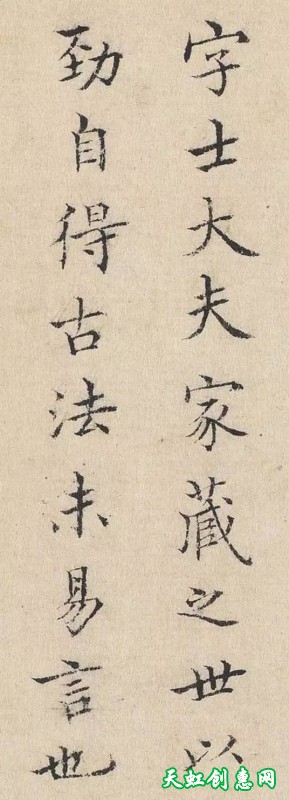 字士大夫家藏之世以
劲自得古法未易言也
天虹创惠网